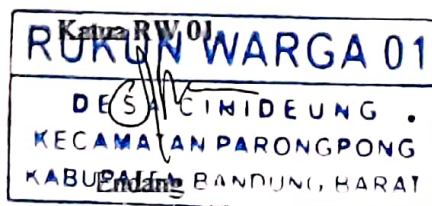 Ketua RW 01
RUKUN WARGA 01
DESA CIHIDEUNG
KECAMATAN PARONGPONG
KABUPATEN BANDUNG BARAT
Endang